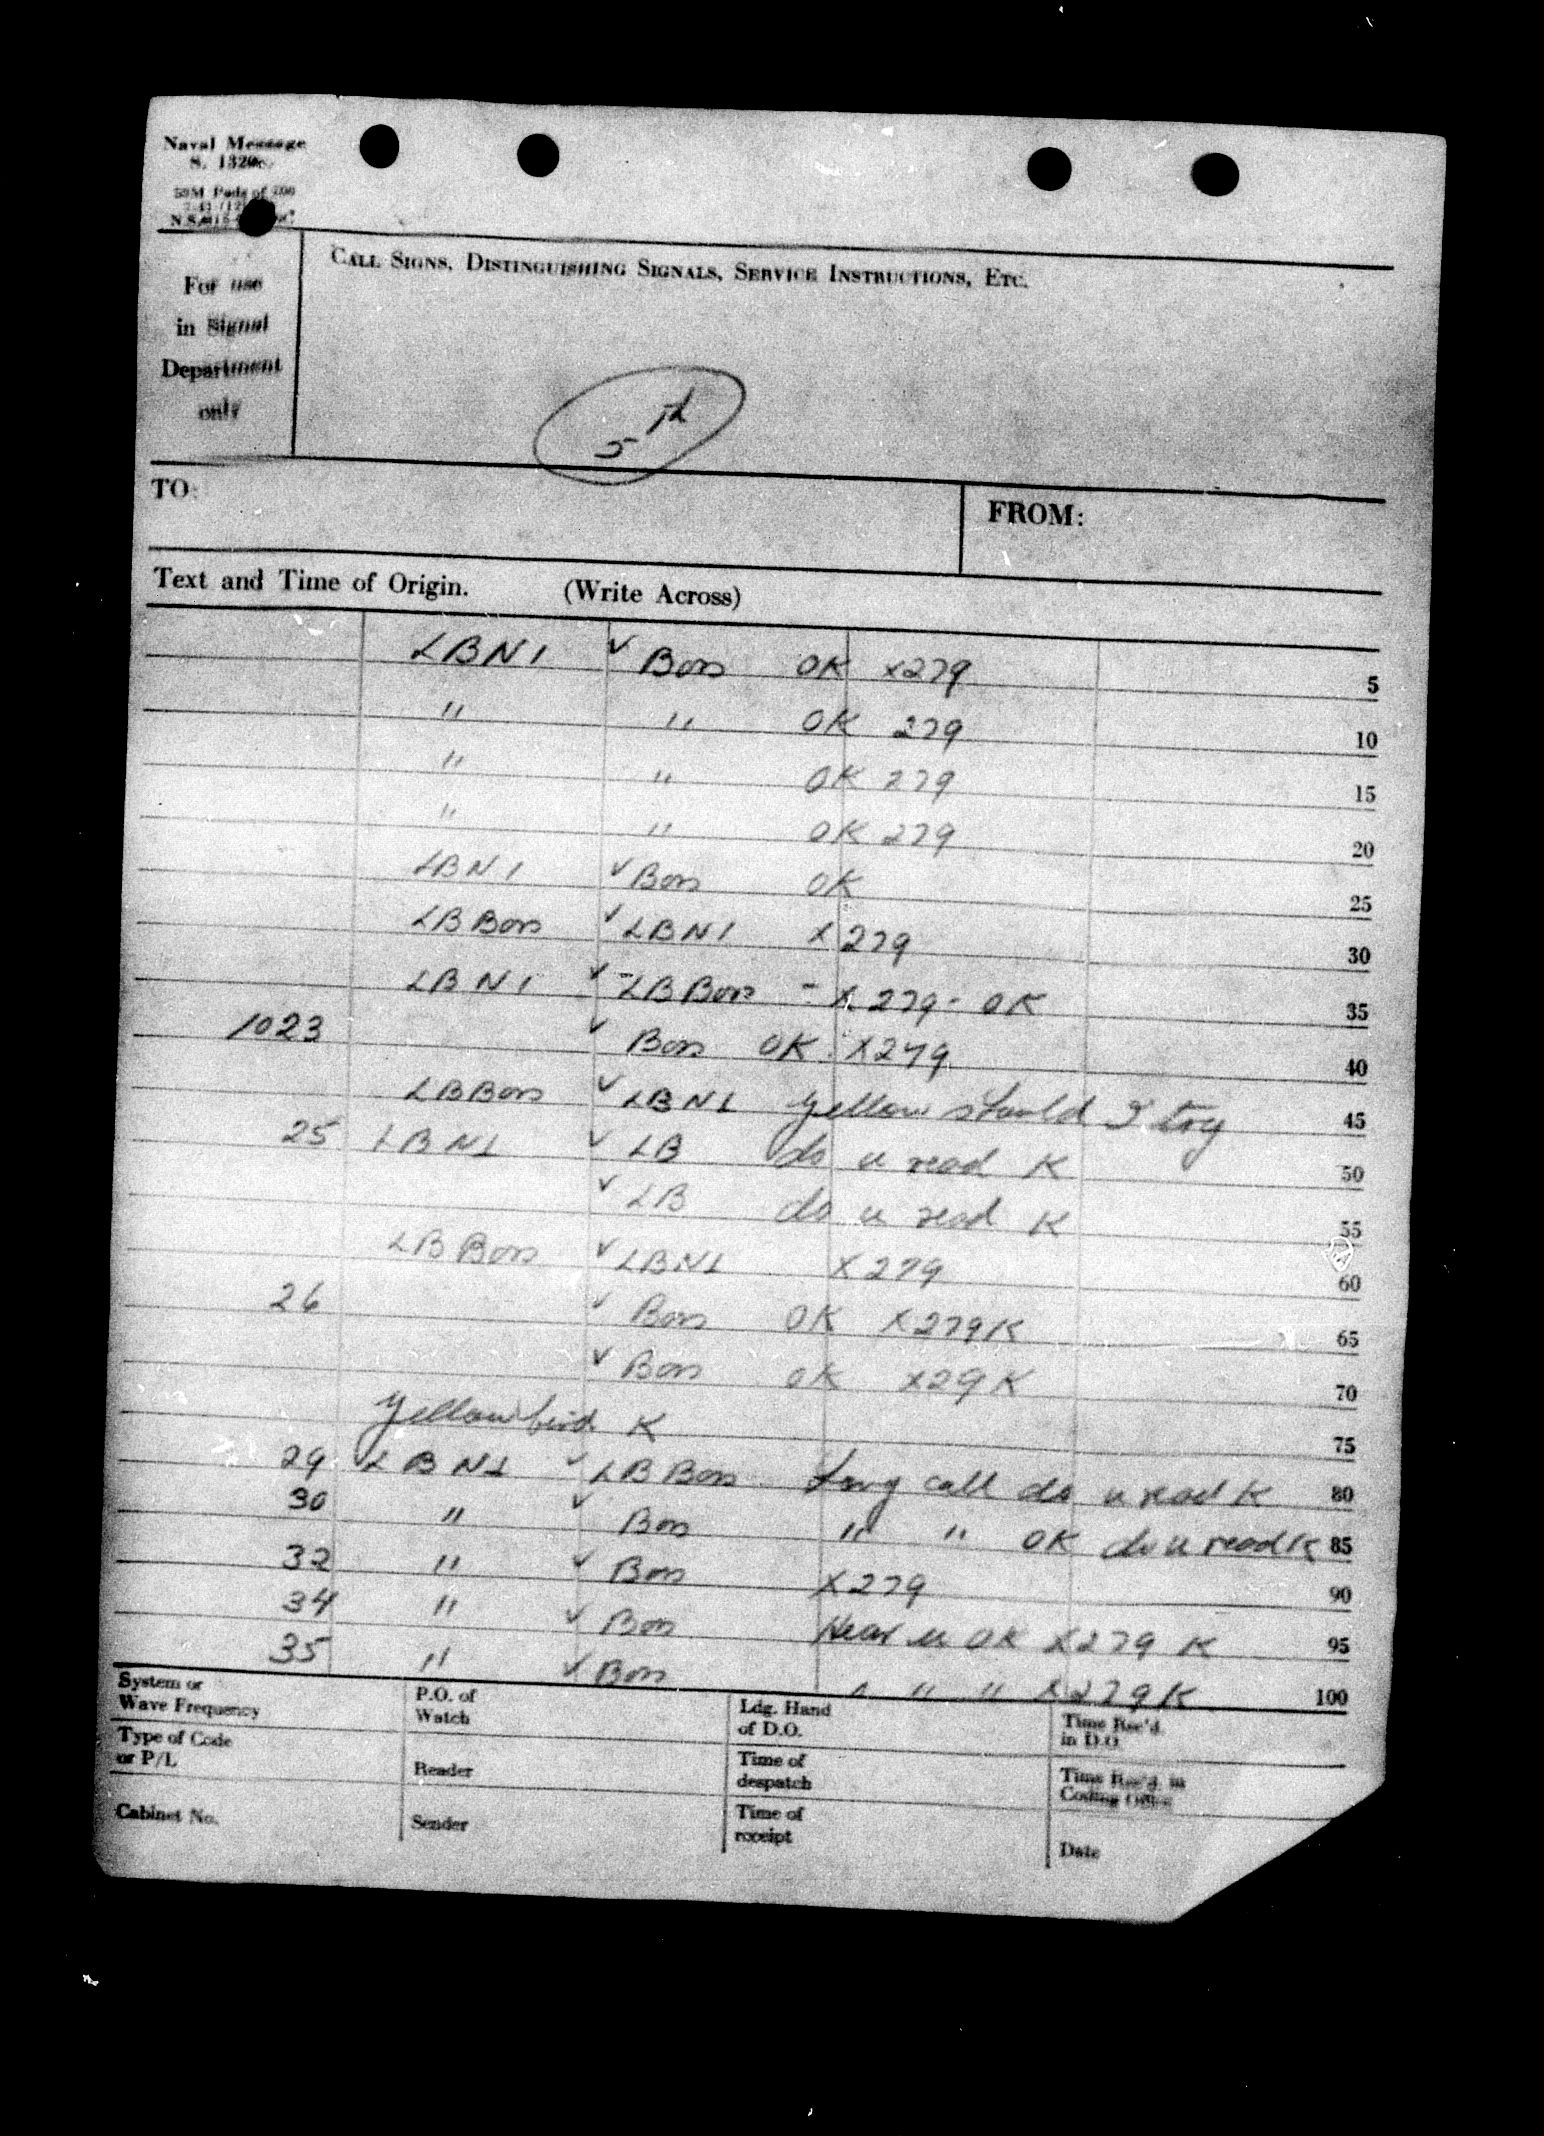 Naval Message
S. 1320c.
50M Pads of 200
N.S.
CALL SIGNS, DISTINGUISHING SIGNALS, SERVICE INSTRUCTIONS, ETC.
For use
in Signal
Department
only
5th
TO:
FROM:
Text and Time of Origin. (Write Across)
LBN1 v Bors OK X279 5
" " OK 279 10
" " OK 279 15
" " OK 279 20
LBN1 v Bors OK 25
LB Bors v LBN1 X 279 30
LBN1 v - LB Bors - X 279 - OK 35
1023 v Bors OK X279 40
LB Bors v LBN1 yellow should I try 45
25 LBN1 v LB do u read K 50
v LB do u read K 55
LB Bors v LBN1 X279 60
26 v Bors OK X279K 65
v Bors OK X29K 70
yellowbird K 75
29 LBN1 v LB Bors Long call do u read K 80
30 " v Bors " " OK do u read K 85
32 " v Bors X279 90
34 " v Bors Hear u OK X279 K 95
35 " v Bors " " " X279K 100
System or
Wave Frequency
P.O. of
Watch
Ldg. Hand
of D.O.
Time Rec'd.
in D.O.
Type of Code
or P/L
Reader
Time of
despatch
Time Rec'd. in
Coding Office
Cabinet No.
Sender
Time of
receipt
Date